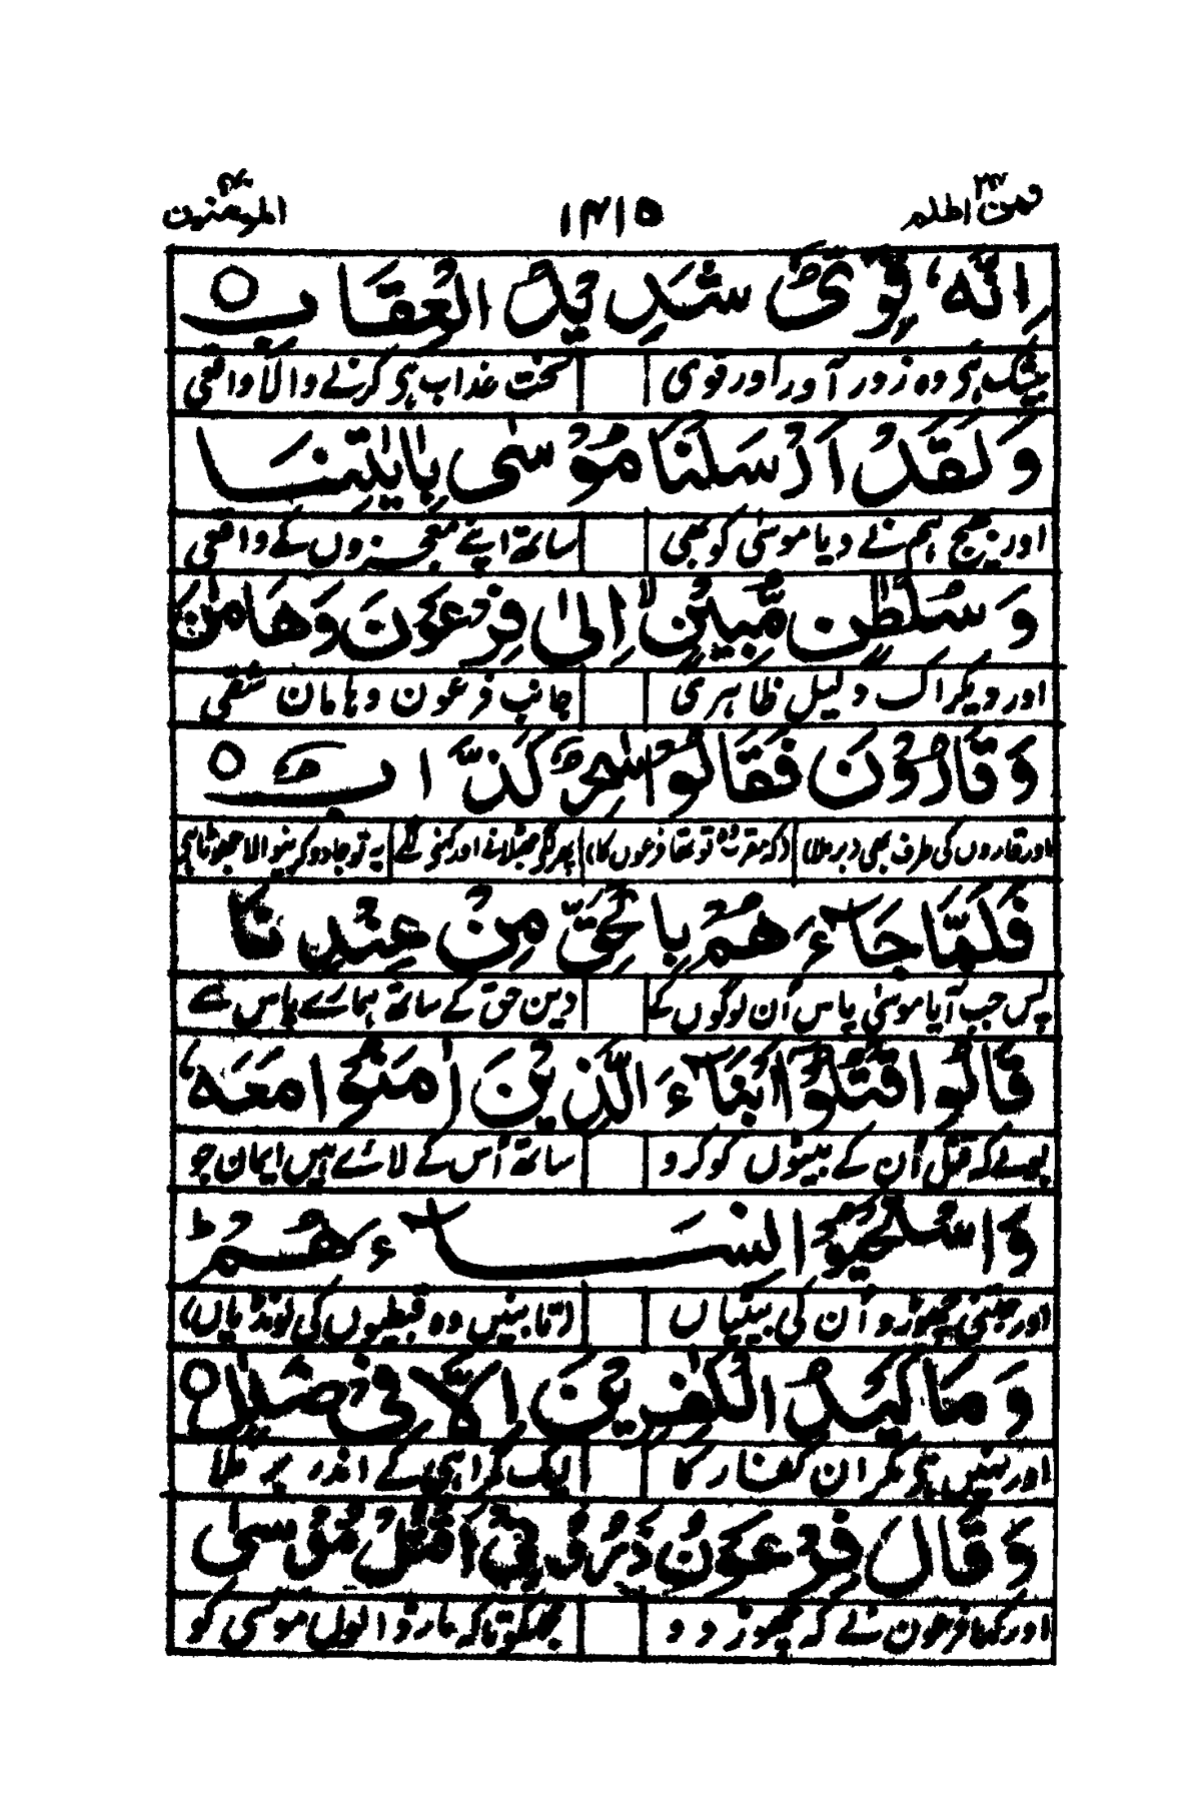 فمن اظلم ۲۴ ۱۴۱۵ المومنون ۴۰
اِنَّهٗ قَوِیٌّ شَدِیْدُ الْعِقَابِ ○
بیشک ہی وہ زور آور اور قوی سخت عذاب ہی کرنے والا واقعی
وَلَقَدْ اَرْسَلْنَا مُوْسٰی بِاٰیٰتِنَا
اور بھیج ہم نے دیا موسیٰ کو بھی ساتھ اپنے معجزوں کے واقعی
وَسُلْطٰنٍ مُّبِیْنٍ ۙ اِلٰی فِرْعَوْنَ وَهَامٰنَ
اور دیکر اک دلیل ظاہری جانب فرعون و ہامان شقی
وَقَارُوْنَ فَقَالُوْا سٰحِرٌ كَذَّابٌ ○
اور قاروں کی طرف بھی (برملا) تو تھا فرعوں کا) پھر لگے جھٹلانے اور کہنے لگے یہ تو جادوگر بنوالا جھوٹا ہی
فَلَمَّا جَآءَهُمْ بِالْحَقِّ مِنْ عِنْدِنَا
پس جب آیا موسیٰ پاس اُن لوگوں کے دین حق کے ساتھ ہمارے پاس سے
قَالُوا اقْتُلُوْۤا اَبْنَآءَ الَّذِیْنَ اٰمَنُوْا مَعَهٗ
بولے کہ قتل اُن کے بیٹوں کو کرو ساتھ اُس کے لائے ہیں ایمان جو
وَاسْتَحْیُوْا نِسَآءَهُمْ ؕ
اور چھوڑو اُن کی بیٹیاں (تا بنیں وہ قبطیوں کی لونڈیاں)
وَمَا كَیْدُ الْكٰفِرِیْنَ اِلَّا فِیْ ضَلٰلٍ ○
اور نہیں ہی مکر ان کفار کا لیک گمراہی کے اندر برملا
وَقَالَ فِرْعَوْنُ ذَرُوْنِیْۤ اَقْتُلْ مُوْسٰی
اور کہا فرعون نے کہ چھوڑ دو مجھکو تاکہ مار ڈالوں موسیٰ کو